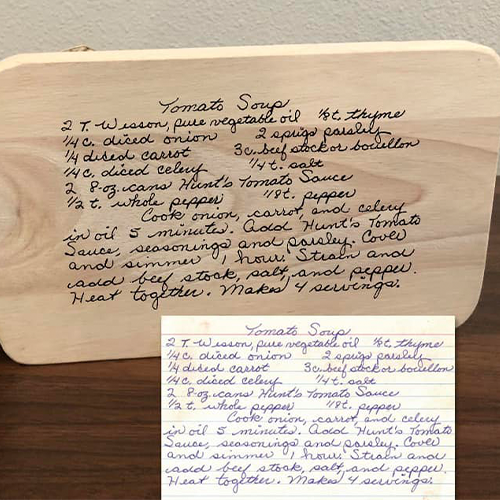 Tomato Soup
2 T. Wesson, pure vegetable oil 1/8t. thyme
1/4 c. diced onion 2 sprigs parsley
1/4 diced carrot 3c. beef stock or bouillon
1/4c. diced celery 1/4 t. salt
2 8-oz. cans Hunt's Tomato Sauce
1/2 t. whole pepper 1/8t. pepper
Cook onion, carrot, and celery
in oil 5 minutes. Add Hunt's Tomato
Sauce, seasonings and parsley. Cover
and simmer 1 hour. Strain and
add beef stock, salt, and pepper.
Heat together. Makes 4 servings.
Tomato Soup
2 T. Wesson, pure vegetable oil 1/8t. thyme
1/4 c. diced onion 2 sprigs parsley
1/4 diced carrot 3c. beef stock or bouillon
1/4c. diced celery 1/4 t. salt
2 8-oz cans Hunt's Tomato Sauce
1/2 t. whole pepper 1/8t. pepper
Cook onion, carrot, and celery
in oil 5 minutes. Add Hunt's Tomato
Sauce, seasonings and parsley. Cover
and simmer 1 hour. Strain and
add beef stock, salt, and pepper.
Heat together. Makes 4 servings.